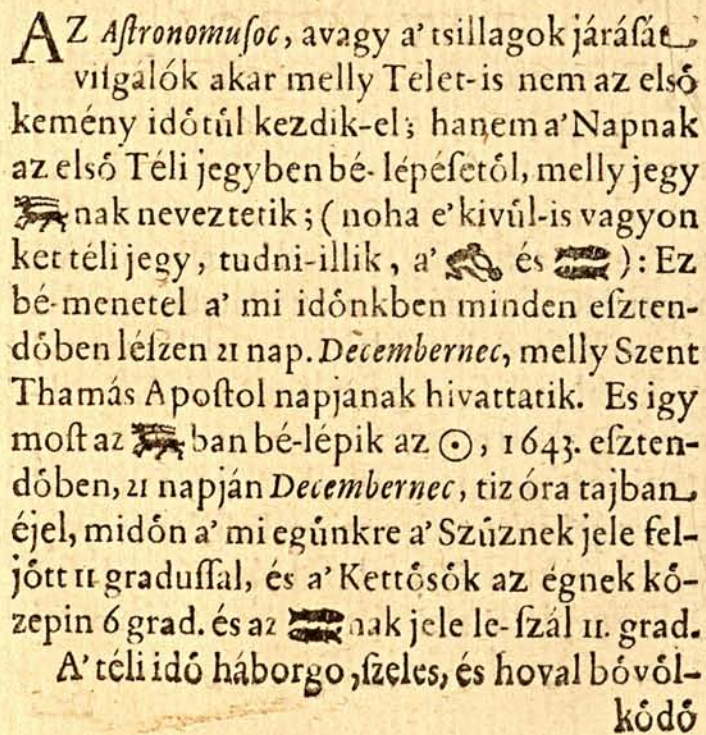 AZ Aſtronomuſoc, avagy a' tsillagok járáſát
viſgálók akar melly Telet-is nem az elsó
kemény idótúl kezdik-el; hanem a' Napnak
az elsó Téli jegyben bé-lépéſetól, melly jegy
♑nak neveztetik; (noha e' kivúl-is vagyon
ket téli jegy, tudni-illik, a' ♒ és ♓): Ez
bé-menetel a' mi idónkben minden eſzten-
dóben léſzen 21 nap. Decembernec, melly Szent
Thamás Apoſtol napjának hivattatik. Es igy
moſt az ♑ban bé-lépik az ☉, 1643. eſzten-
dóben, 21 napján Decembernec, tiz óra tajban
éjel, midón a' mi egúnkre a' Szúznek jele fel-
jótt 11 graduſſal, és a' Kettósók az égnek kó-
zepin 6 grad. és az ♓nak jele le-ſzál 11. grad.
A' téli idó háborgo, ſzeles, és hoval bóvól-
kódó